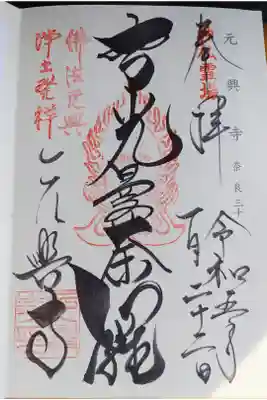 元興寺 奈良三十
奉拝
霊場
令和五年
一月二十二日
智光曼荼羅
佛法元興
浄土発祥
元興寺